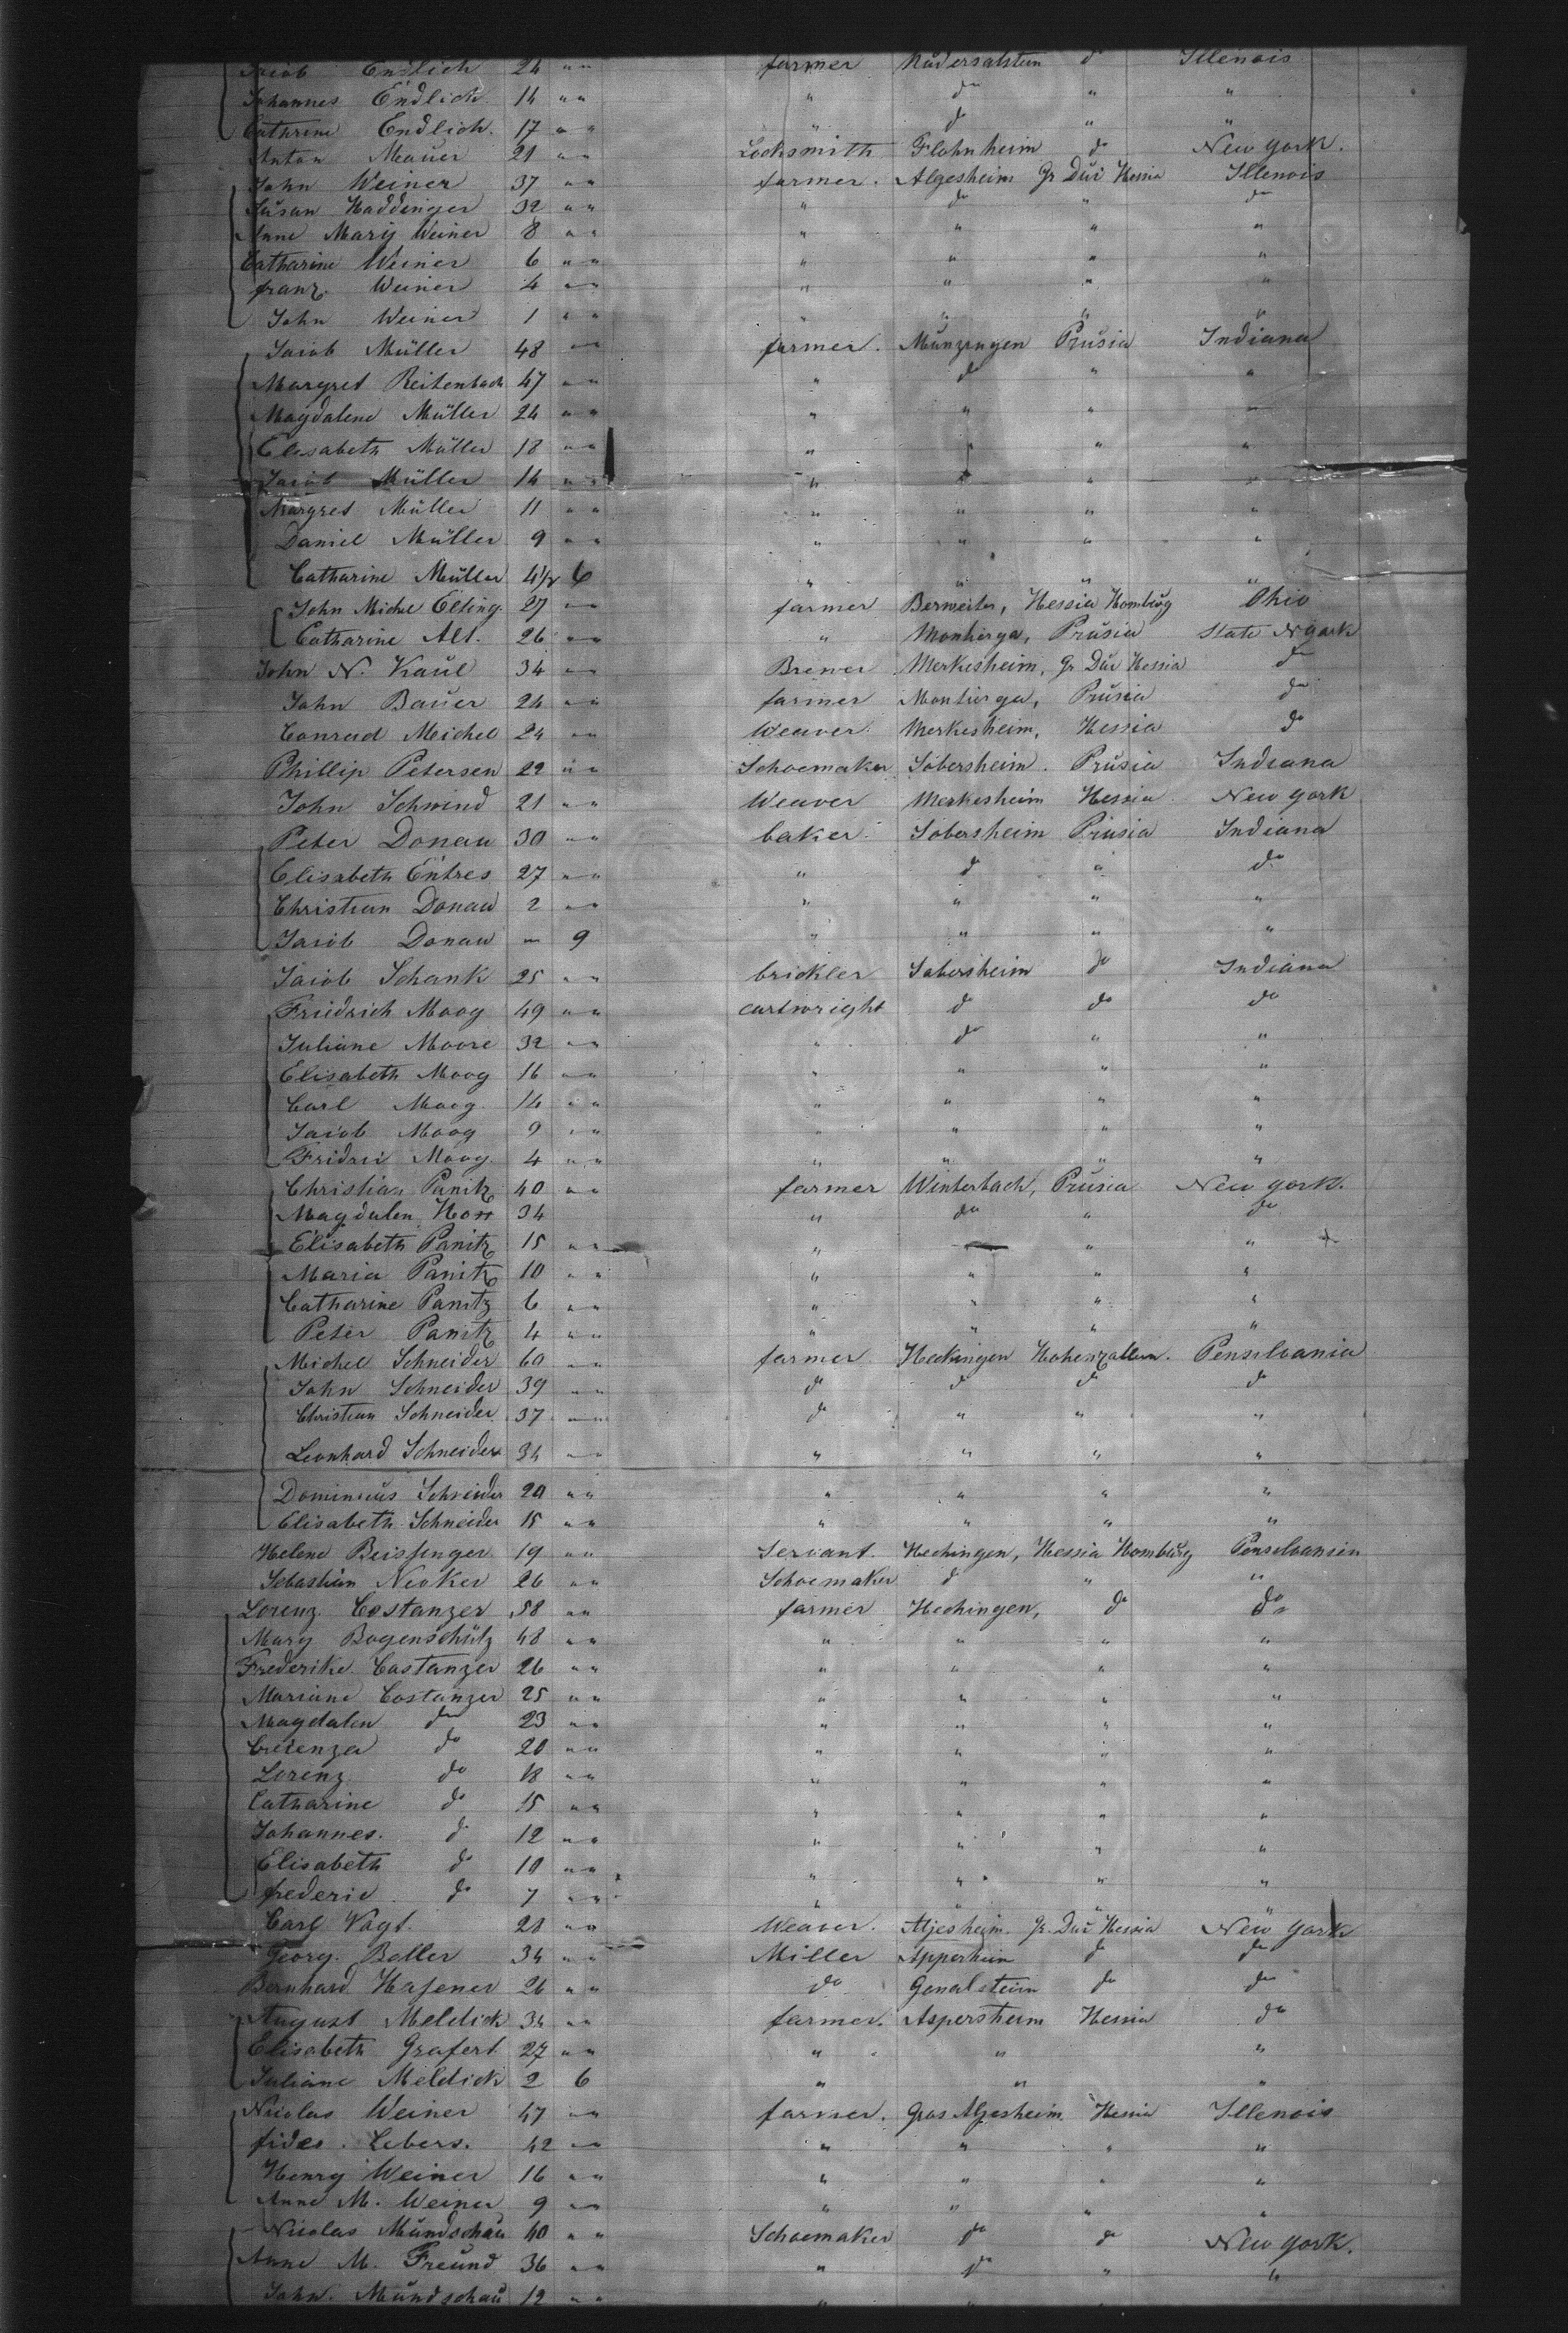 Jacob Endlich 24 " " farmer do Illenois
Johannes Endlich 14 " " " do " "
Cathrine Endlich. 17 " " " do " "
Anton Mauer 21 " " Locksmith Flohnheim do New York.
John Weiner 37 " " farmer. Algesheim Gr Dui Hessia Illenois
Susan Haddinger 32 " " " do " do
Anne Mary Weiner 8 " " " " " "
Catharine Weiner 6 " " " " " "
franz. Weiner 4 " " " " " "
John Weiner 1 " " " " " "
Jacob Müller 48 " " farmer. Munzingen Prusia Indiana
Margret Reitenbach 47 " " " do " "
Magdalene Müller 24 " " " " " "
Elisabeth Müller 18 " " " " " "
Jacob Müller 14 " " " " " "
Margret Müller 11 " " " " " "
Daniel Müller 9 " " " " " "
Catharine Müller 4½ 6 " " " "
John Michel Elting 27 " " farmer Berweiler, Hessia Homburg Ohio
Catharine Alt. 26 " " " Prusia State N York
John N. Kaul 34 " " Brewer Merkesheim, Gr Dui Hessia do
John Bauer 24 " " farmer Prusia do
Conrad Michel 24 " " Weaver Merkesheim, Hessia do
Phillip Petersen 22 " " Schoemaker Sobersheim. Prusia Indiana
John Schwind 21 " " Weaver Merkesheim Hessia New York
Peter Donau 30 " " baker Sobersheim Prusia Indiana
Elisabeth Entres 27 " " " do " do
Christian Donau 2 " " " " " "
Jacob Donau " 9 " " " "
Jacob Schank 25 " " brickler Sobersheim do Indiana
Friedrich Moog 49 " " cartwright do do do
Juliane Moore 32 " " " do " "
Elisabeth Moog 16 " " " " " "
Carl Moog 14 " " " " " "
Jacob Moog 9 " " " " " "
Fridrei Moog 4 " " " " " "
Christian Panitz 40 " " farmer Winterbach, Prusia New york.
Magdalen Horr 34 " do " do
Elisabeth Panitz 15 " " " " "
Maria Panitz 10 " " " " " "
Catharine Panitz 6 " " " " " "
Peter Panitz 4 " " " " " "
Michel Schneider 60 " " farmer Heckingen Hohenzallern. Pensilvania
John Schneider 39 " " do do do do
Christian Schneider 37 " " do " " "
Leonhard Schneider 34 " " " " " "
Dominicus Schneider 20 " " " " " "
Elisabeth Schneider 15 " " " " " "
Helene Beissinger 19 " " Servant. Hechingen, Hessia Homburg Penselvanien
Sebastian Necker 26 " " Schoemaker do " "
Lorenz Costanzer 58 " " farmer Hechingen, do do
Mary Bogenschütz 48 " " " " " "
Frederike Costanzer 26 " " " " " "
Mariane Costanzer 25 " " " " " "
Magdalen do 23 " " " " " "
Creienzer do 20 " " " " " "
Lorenz do 18 " " " " " "
Catharine do 15 " " " " " "
Johannes. do 12 " " " " " "
Elisabeth do 10 " " " " " "
frederic. do 7 " " " " " "
Carl Vagt. 21 " " Weaver. Algesheim Gr. Dui Hessia New York
Georg. Baller 34 " " Miller Apperheim do do
Bernhard Hafener 26 " " do do do
August Meldick 34 " " farmer. Aspersheim Hessia do
Elisabeth Grafert 27 " " " " "
Juliane Meldick 2 6 " " "
Nicolas Weiner 47 " " farmer. Gros Algesheim Hessia Illenois
fides. Lebers. 42 " " " " " "
Henry Weiner 16 " " " " " "
Anne M. Weiner 9 " " " " " "
Nicolas Mundschau 40 " " Schoemaker do do New York.
Anne M. Freund 36 " " " do " "
John. Mundschau 12 " " " " "